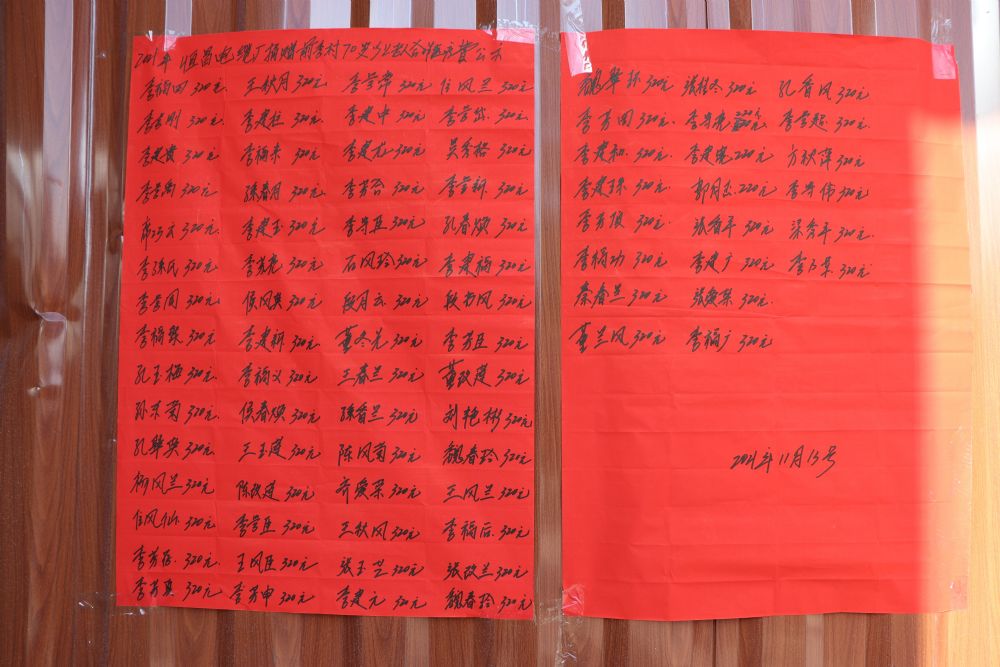 2021年恒昌电缆厂捐赠前李村70岁以上老人合作医疗费公示
李福田320元 王秋月320元 李芳常320元 任风兰320元
李芳刚320元 李建拉320元 李建中320元 李芳岱320元
李建贵320元 李福来320元 李建尤320元 吴秀格320元
李芳尚320元 孫春月320元 李芳合320元 李芳新320元
席巧云320元 李建玉320元 李芳臣320元 孔春焕320元
李孫氏320元 李芳亮320元 石风玲320元 李建福320元
李芳同320元 侯风英320元 段月云320元 段书风320元
李福聚320元 李建新320元 董冬先320元 李芳臣320元
孔玉梅320元 李福义320元 王春兰320元 董改莲320元
孙东菊320元 侯春焕320元 孫香兰320元 刘艳彬320元
孔翠英320元 王玉莲320元 陈风菊320元 魏春玲320元
柳风兰320元 陈改莲320元 齐爱菜320元 王风兰320元
任风仙320元 李芳臣320元 王秋风320元 李福后320元
李芳存320元 王风臣320元 张玉芝320元 张改兰320元
李芳真320元 李芳申320元 李建元320元 魏春玲320元
魏翠环320元 張桂冬320元 孔香风320元
李芳田320元 李芳亮220元 李芳超320元
李建和320元 李建宽220元 方秋萍320元
李建珠320元 郭月玉220元 李芳伟320元
李芳俊320元 張香平320元 梁秀平320元
李福功320元 李建广320元 320元
秦春兰320元 張爱菜320元
董兰风320元 李福广320元
2021年11月13号